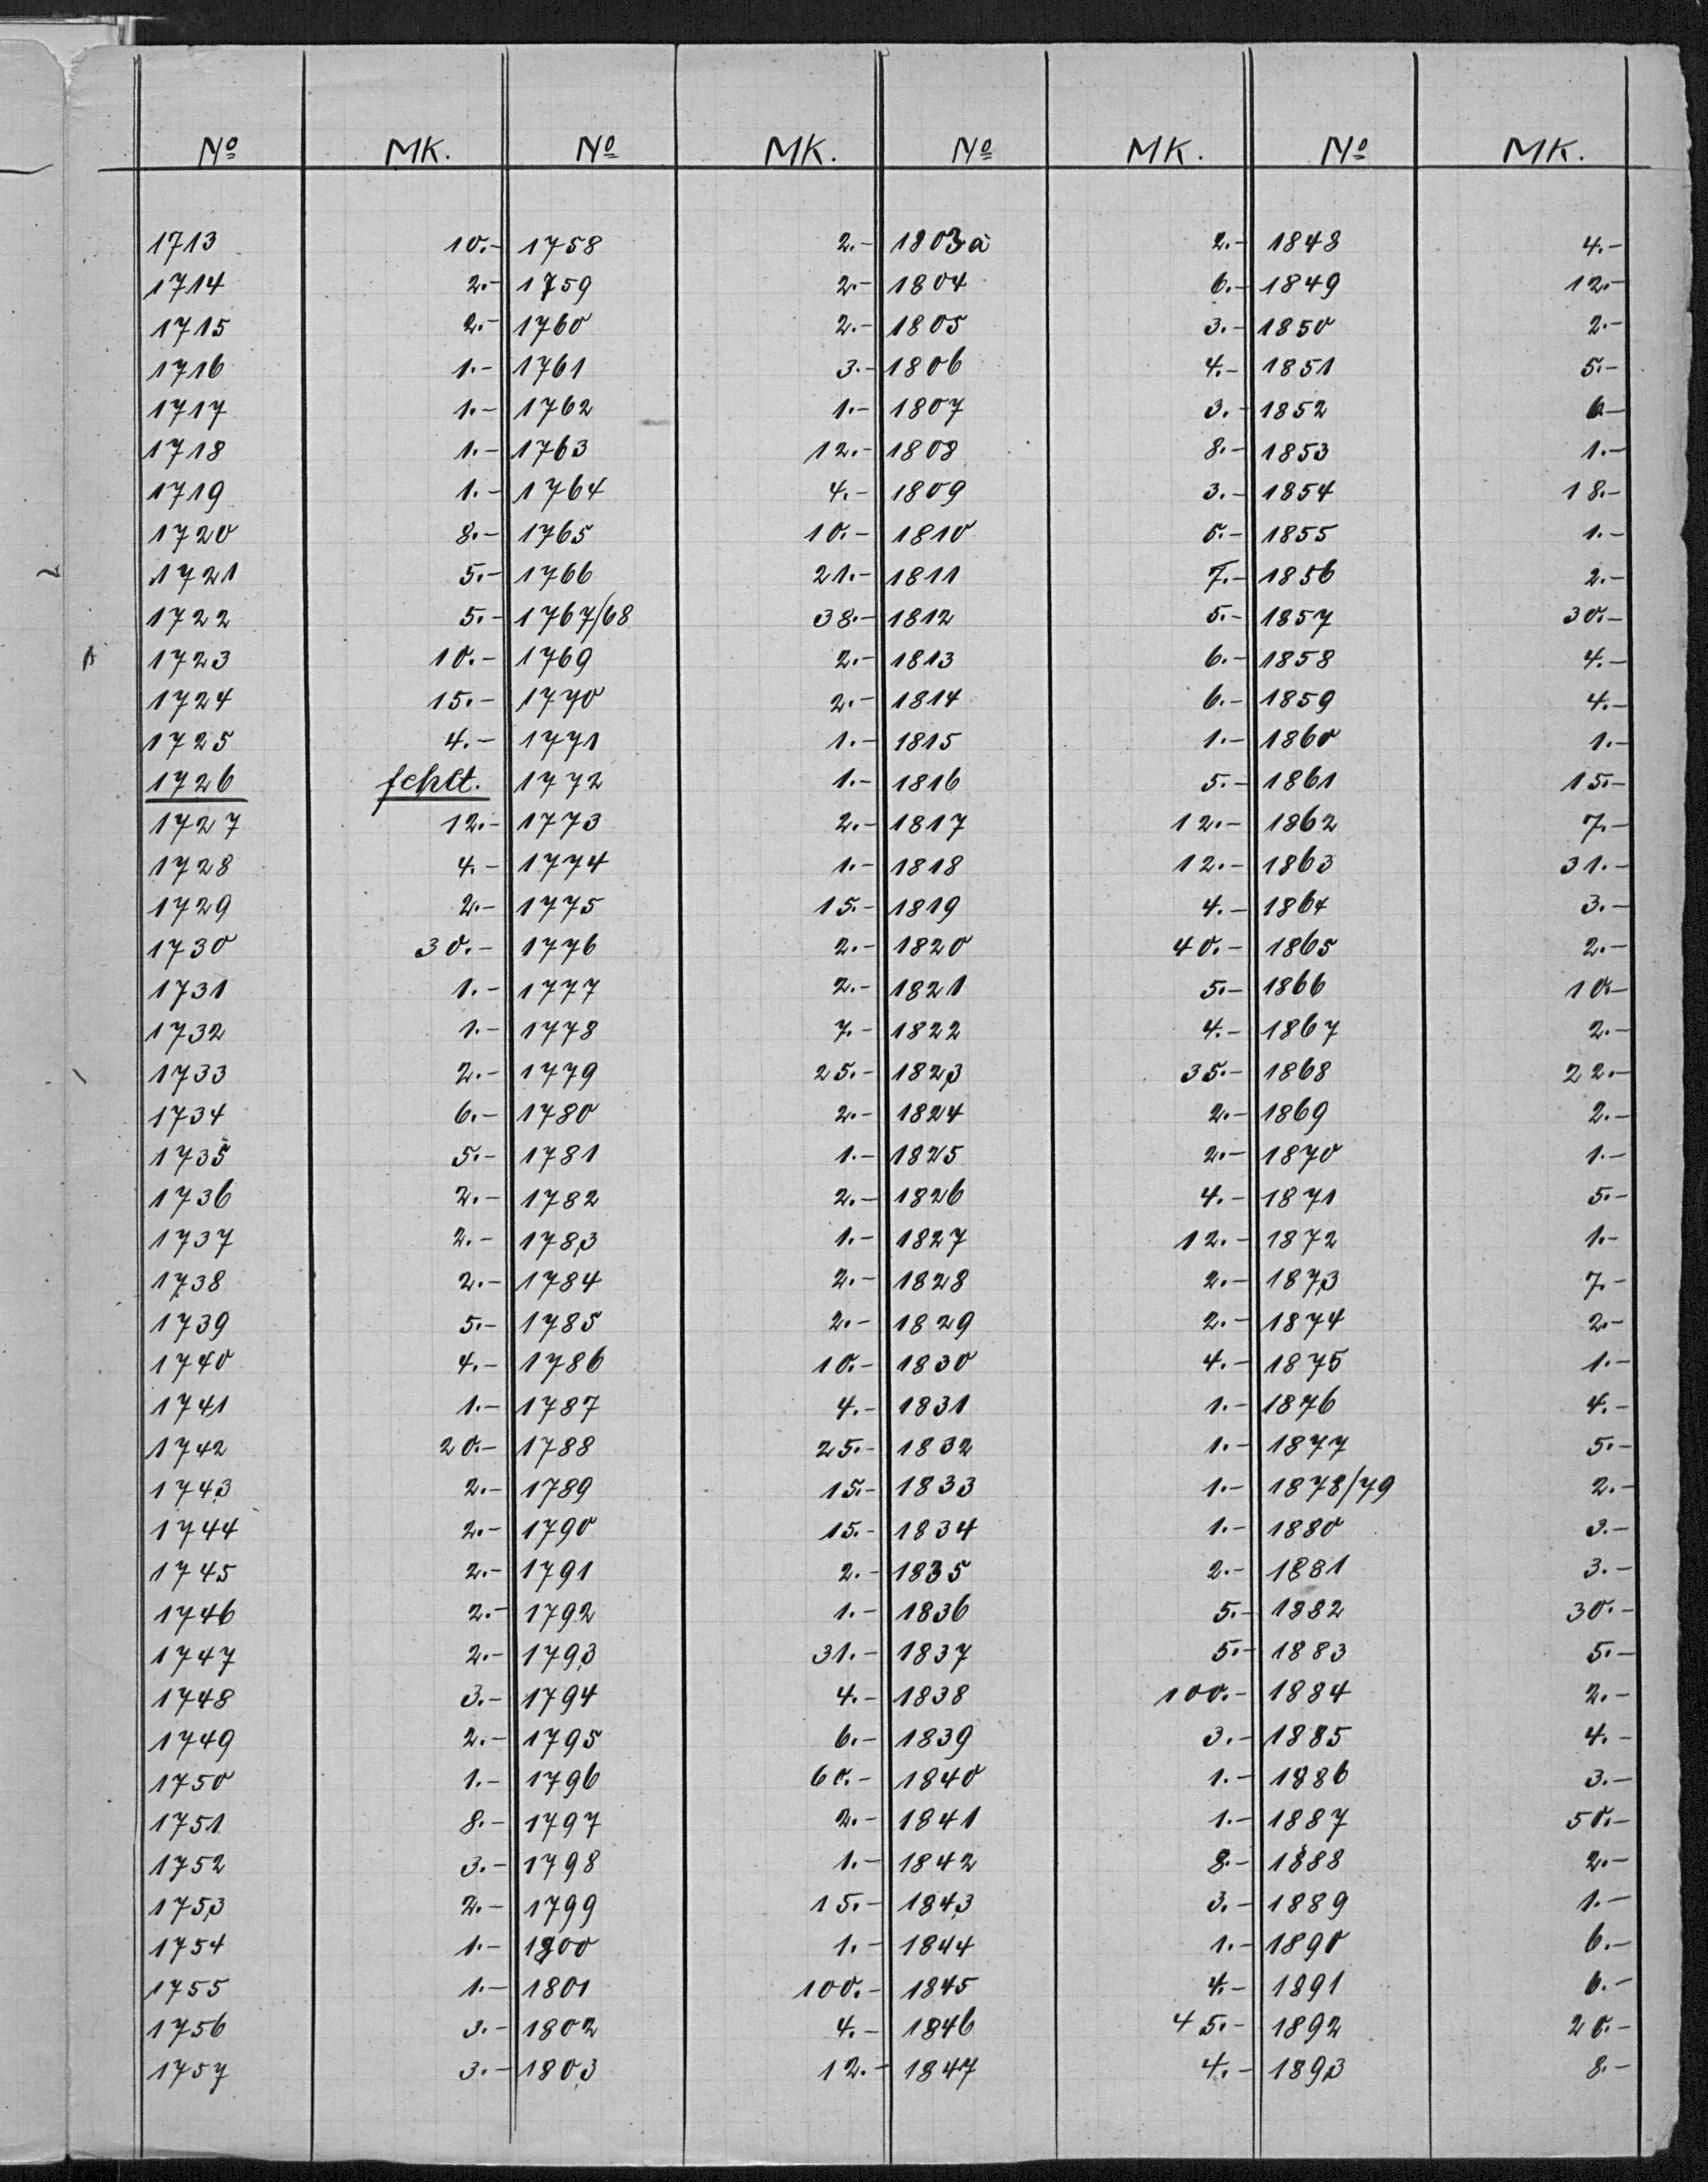 Nº MK. Nº MK. Nº MK. Nº MK.
1713 10.- 1758 2.- 1803a 2.- 1848 4.-
1714 2.- 1759 2.- 1804 6.- 1849 12.-
1715 2.- 1760 2.- 1805 3.- 1850 2.-
1716 1.- 1761 3.- 1806 4.- 1851 5.-
1717 1.- 1762 1.- 1807 3.- 1852 6.-
1718 1.- 1763 12.- 1808 8.- 1853 1.-
1719 1.- 1764 4.- 1809 3.- 1854 18.-
1720 8.- 1765 10.- 1810 5.- 1855 1.-
1721 5.- 1766 21.- 1811 7.- 1856 2.-
1722 5.- 1767/68 38.- 1812 5.- 1857 30.-
1723 10.- 1769 2.- 1813 6.- 1858 4.-
1724 15.- 1770 2.- 1814 6.- 1859 4.-
1725 4.- 1771 1.- 1815 1.- 1860 1.-
1726 fehlt. 1772 1.- 1816 5.- 1861 15.-
1727 12.- 1773 2.- 1817 12.- 1862 7.-
1728 4.- 1774 1.- 1818 12.- 1863 31.-
1729 2.- 1775 15.- 1819 4.- 1864 3.-
1730 30.- 1776 2.- 1820 40.- 1865 2.-
1731 1.- 1777 2.- 1821 5.- 1866 10.-
1732 1.- 1778 7.- 1822 4.- 1867 2.-
1733 2.- 1779 25.- 1823 35.- 1868 22.-
1734 6.- 1780 2.- 1824 2.- 1869 2.-
1735 5.- 1781 1.- 1825 2.- 1870 1.-
1736 2.- 1782 2.- 1826 4.- 1871 5.-
1737 2.- 1783 1.- 1827 12.- 1872 1.-
1738 2.- 1784 2.- 1828 2.- 1873 7.-
1739 5.- 1785 2.- 1829 2.- 1874 2.-
1740 4.- 1786 10.- 1830 4.- 1875 1.-
1741 1.- 1787 4.- 1831 1.- 1876 4.-
1742 20.- 1788 25.- 1832 1.- 1877 5.-
1743 2.- 1789 15.- 1833 1.- 1878/79 2.-
1744 2.- 1790 15.- 1834 1.- 1880 3.-
1745 2.- 1791 2.- 1835 2.- 1881 3.-
1746 2.- 1792 1.- 1836 5.- 1882 30.-
1747 2.- 1793 31.- 1837 5.- 1883 5.-
1748 3.- 1794 4.- 1838 100.- 1884 2.-
1749 2.- 1795 6.- 1839 3.- 1885 4.-
1750 1.- 1796 60.- 1840 1.- 1886 3.-
1751 8.- 1797 2.- 1841 1.- 1887 50.-
1752 3.- 1798 1.- 1842 8.- 1888 2.-
1753 2.- 1799 15.- 1843 3.- 1889 1.-
1754 1.- 1800 1.- 1844 1.- 1890 6.-
1755 1.- 1801 100.- 1845 4.- 1891 6.-
1756 3.- 1802 4.- 1846 45.- 1892 20.-
1757 3.- 1803 12.- 1847 4.- 1893 8.-